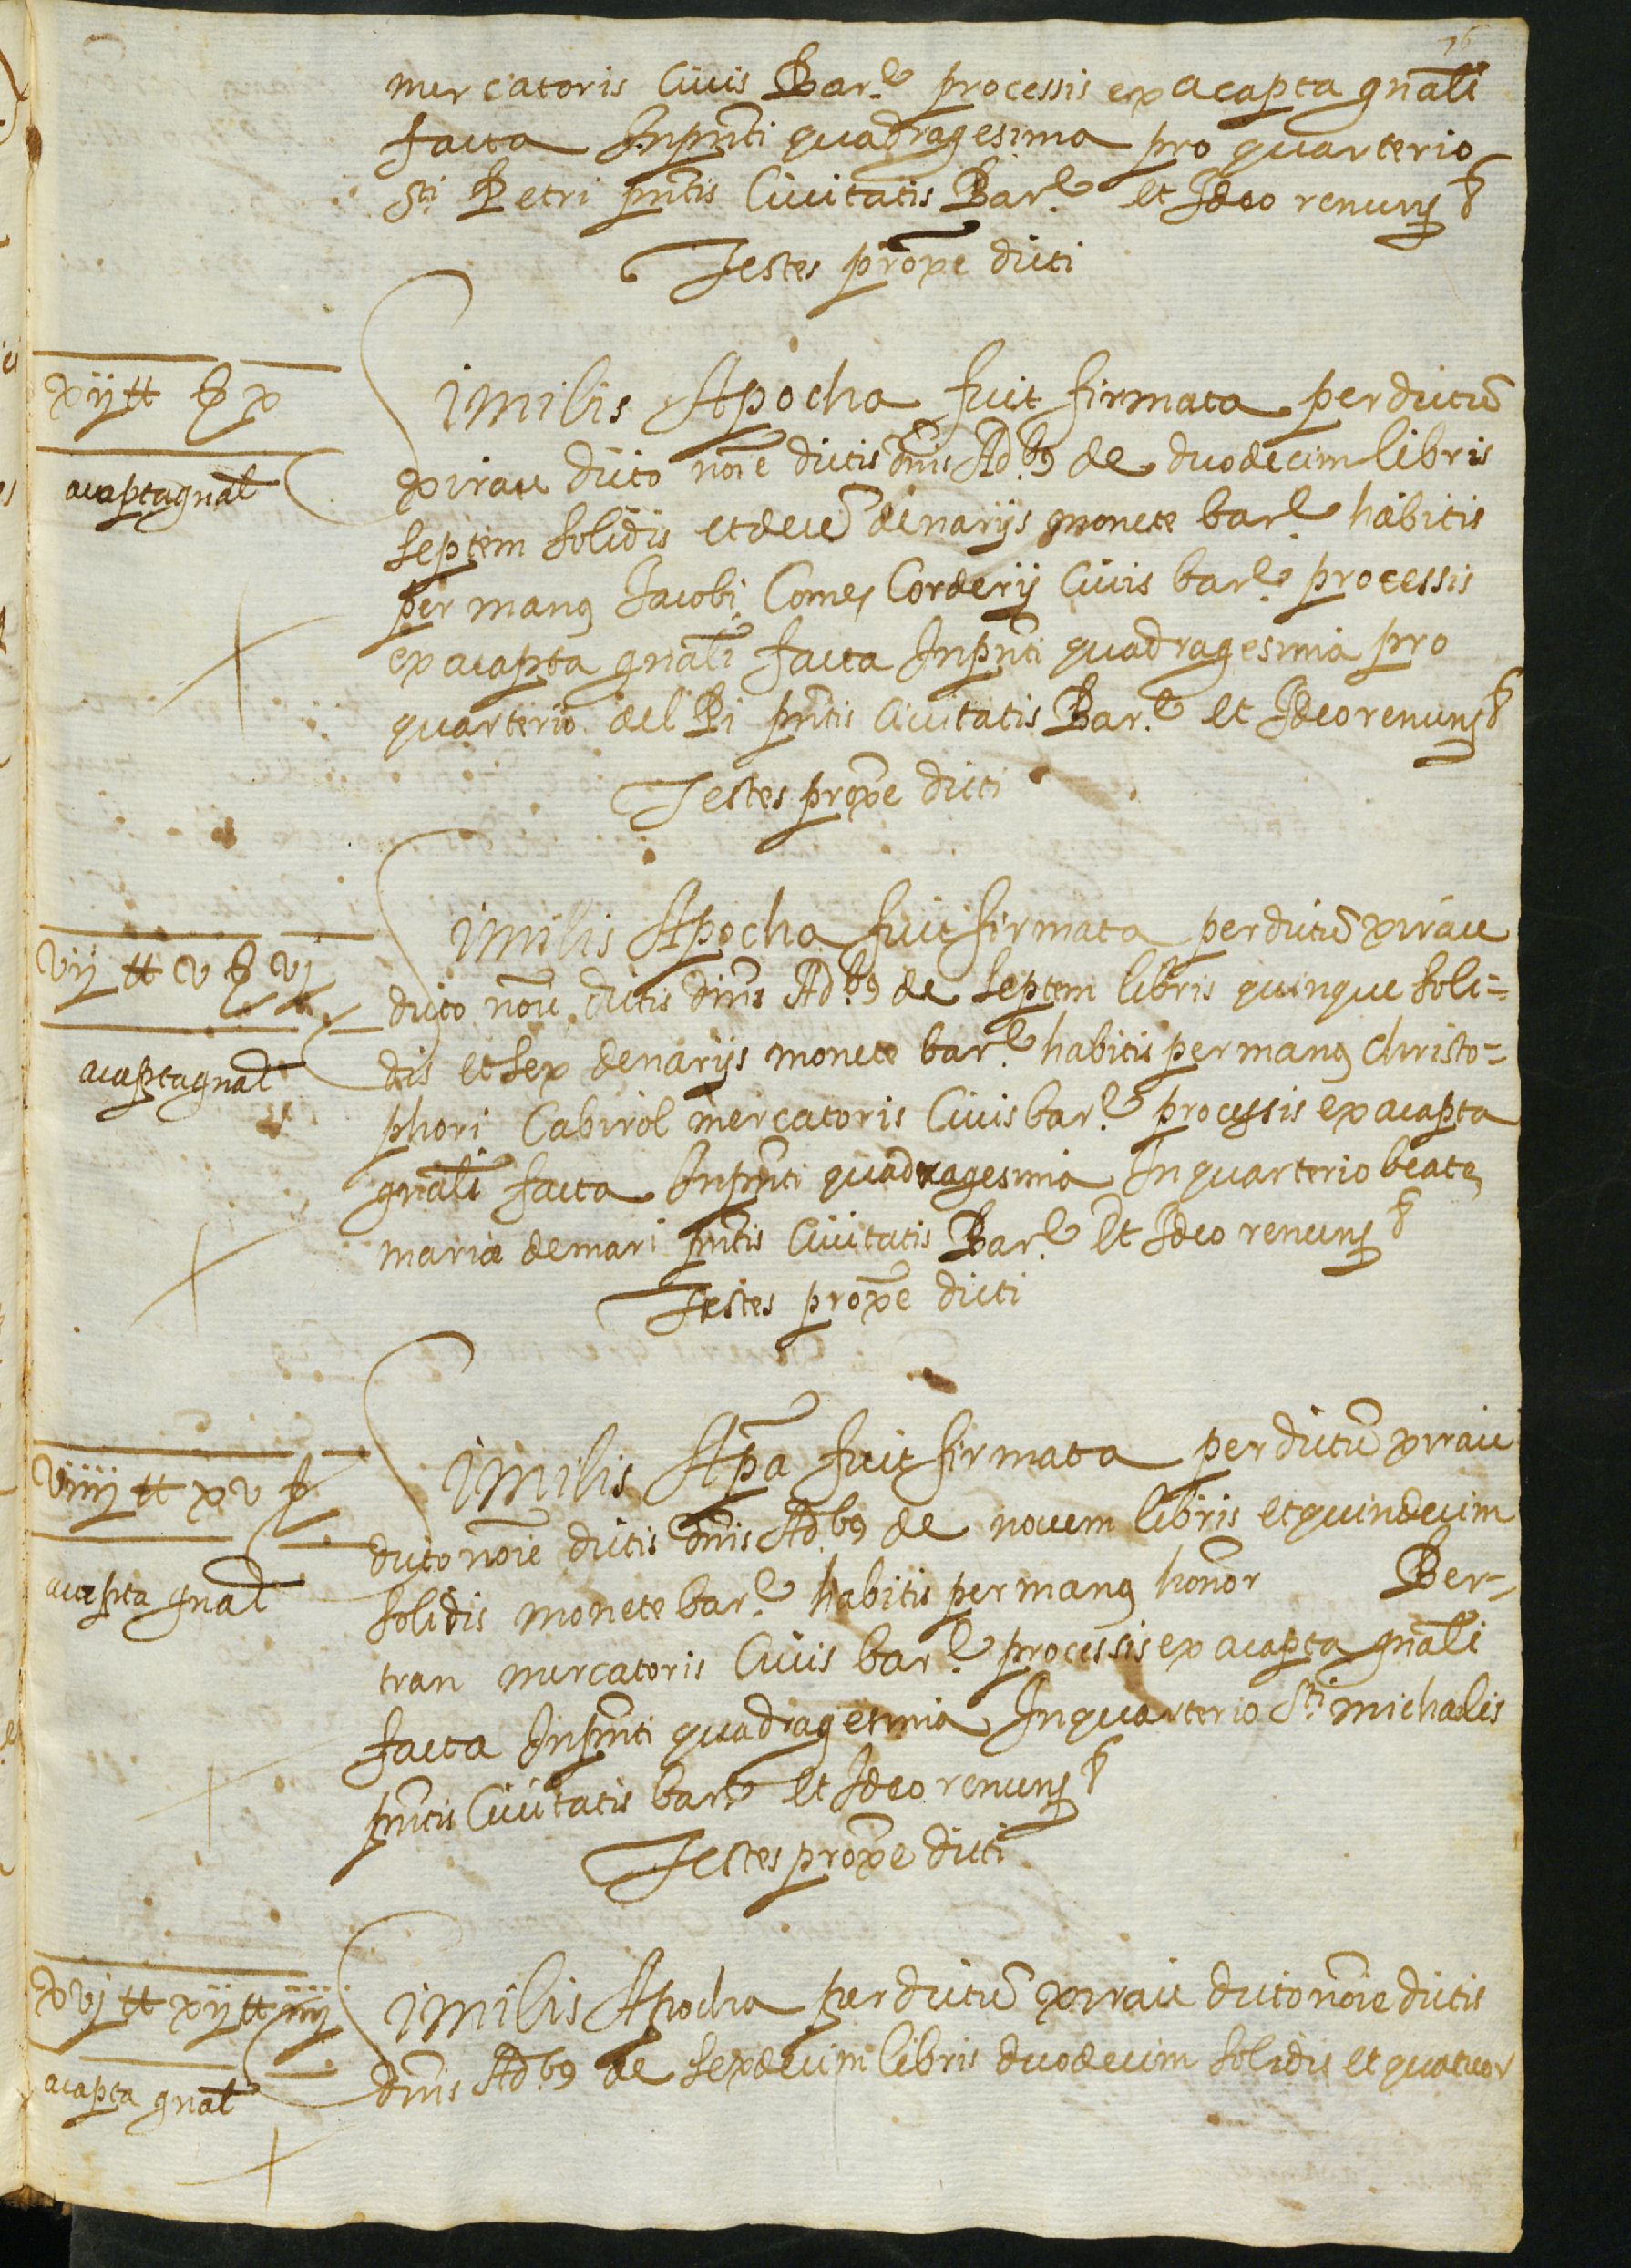 mercatoris Ciuis Bar.e processis ex acapta gnãli
facta Inpñti quadragesima pro quarterio
Sti Petri pñtis Ciuitatis Bar.e et Ideo renuns &
Testes proxe dicti
xij tt § x
acapta gnãl
Similis Apocha fuit firmata per dictũ
xirau dicto noĩe dictis dñis Adb9 de duodecim libris
septem solidis et decẽ denarijs monete bar.e habitis
per man9 Jacobi Comes Corderij Ciuis bar.e processis
ex acapta gnãli facta Inpñti quadragesima pro
quarterio del Pi pñtis Ciuitatis Bar.e et Ideo renuns &
Testes proxe dicti
vij tt v § vj
acapta gnãl
Similis Apocha fuit firmata per dictũ xirau
dicto noĩe dictis dñis Adb9 de septem libris quinque soli=
dis et sex denarijs monete bar.e habitis per man9 christo=
phori Cabirol mercatoris Ciuis bar.e processis ex acapta
gnãli facta Inpñti quadragesima In quarterio beate
marie demari pñtis Ciuitatis Bar.e Et Ideo renuns &
Testes proxe dicti
viiij tt xv §
acapta gnãl
Similis Apã fuit firmata per dictũ xirau
dicto noĩe dictis dñis Adb9 de nouem libris et quindecim
solidis monete bar.e habitis per man9 honor Ber=
tran mercatoris Ciuis bar.e processis ex acapta gnãli
facta Inpñti quadragesima In quarterio Sti michaelis
pñtis Ciuitatis bar.e et Ideo renuns &
Testes proxe dicti
xvj tt xij tt iiij
acapta gnãl
Similis Apocha per dictũ xirau dicto noĩe dictis
dñis Adb9 de sexdecim libris duodecim solidis et quatuor